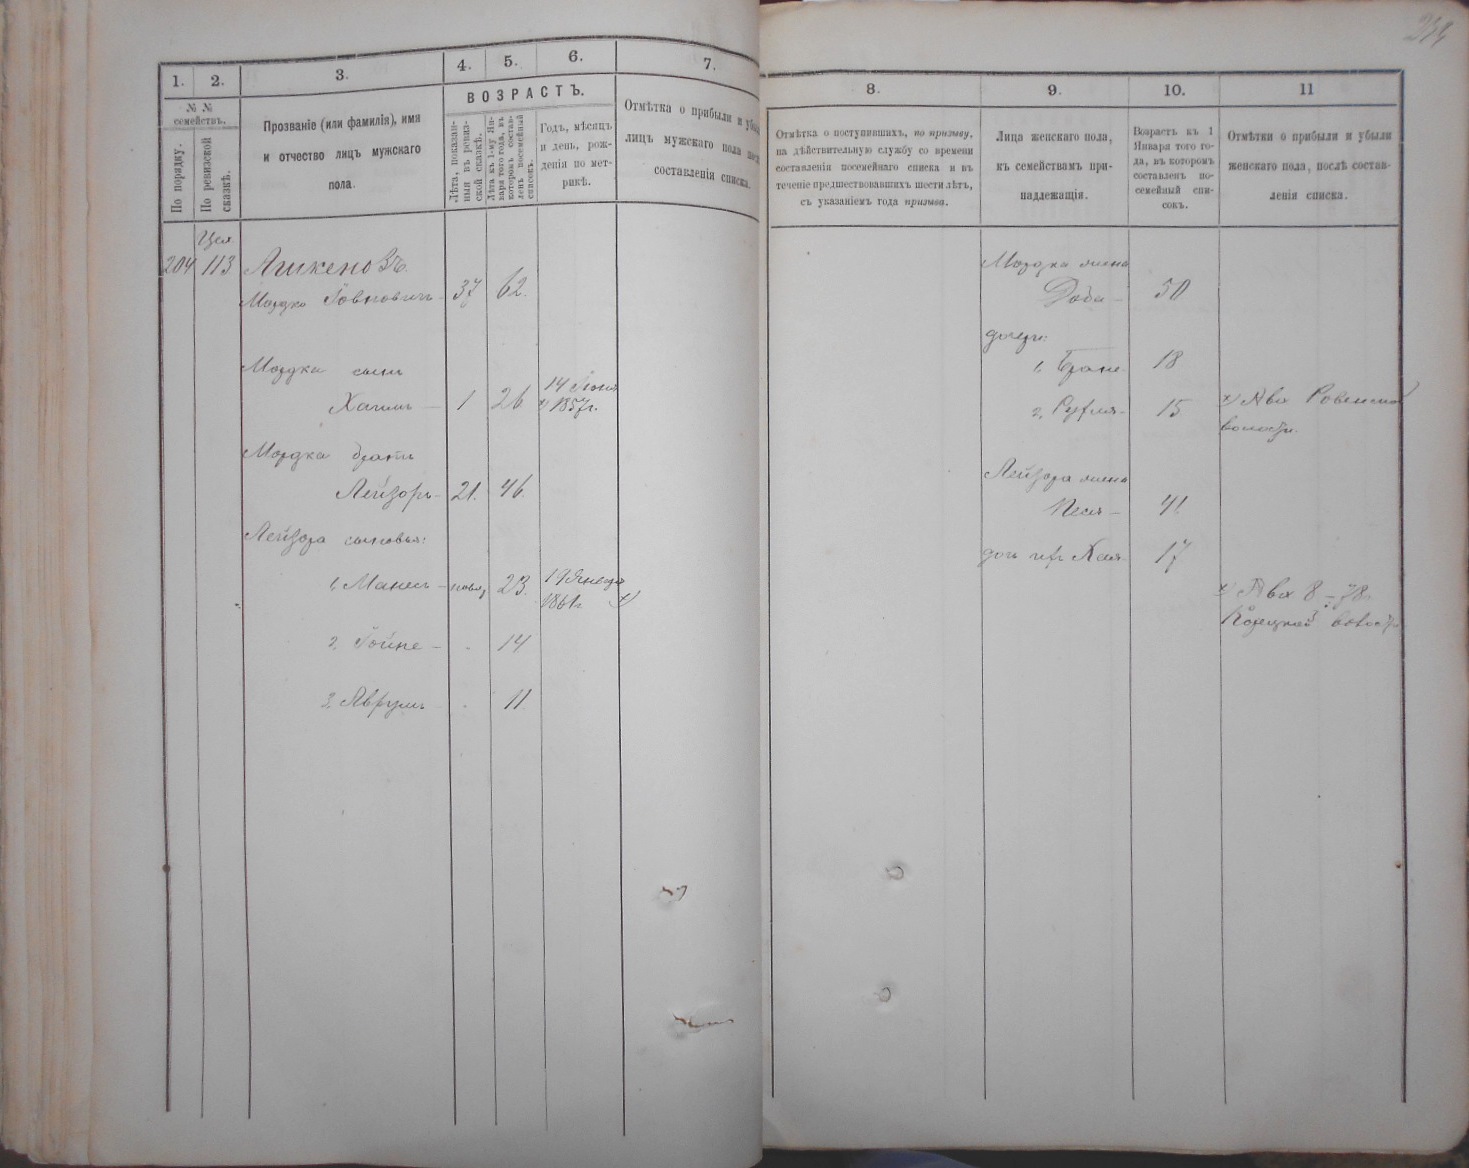 234
1.
2.
3.
4.
5.
6.
7.
№ №
семействъ.
По порядку.
По ревизской
сказкѣ.
Прозваніе (или фамилія), имя
и отчество лицъ мужскаго
пола.
ВОЗРАСТЪ.
Лѣта, показан-
ныя въ ревиз-
ской сказкѣ.
Лѣта къ 1-му Ян-
варя того года, въ
которомъ состав-
ленъ посемейный
списокъ.
Годъ, мѣсяцъ
и день, рож-
денія по мет-
рикѣ.
Отмѣтка о прибыли и
лицъ мужскаго пола
составленія списка.
204 113
Мордко
37 62.
Мордка сынъ
Хаимъ 1 26
14
x) 1857г.
Мордка братъ
Лейзоръ 21. 46
Лейзора сыновья:
1, 23. 19 Января
1861г. x)
2, 14
3, Аврумъ 11
8.
9.
10.
11
Отмѣтка о поступившихъ, по призыву,
на дѣйствительную службу со времени
составленія посемейнаго списка и въ
теченіе предшествовавшихъ шести лѣтъ,
съ указаніемъ года призыва.
Лица женскаго пола,
къ семействамъ при-
надлежащія.
Возрастъ къ 1
Января того го-
да, въ которомъ
составленъ по-
семейный спи-
сокъ.
Отмѣтки о прибыли и убыли
женскаго пола, послѣ состав-
ленія списка.
Мордка жена
Доба 50
дочери:
1, 18
2, 15
x) Ровенской
волости.
Лейзора жена
Песя 41
дочь Хая 17
x)
Корецкой волости